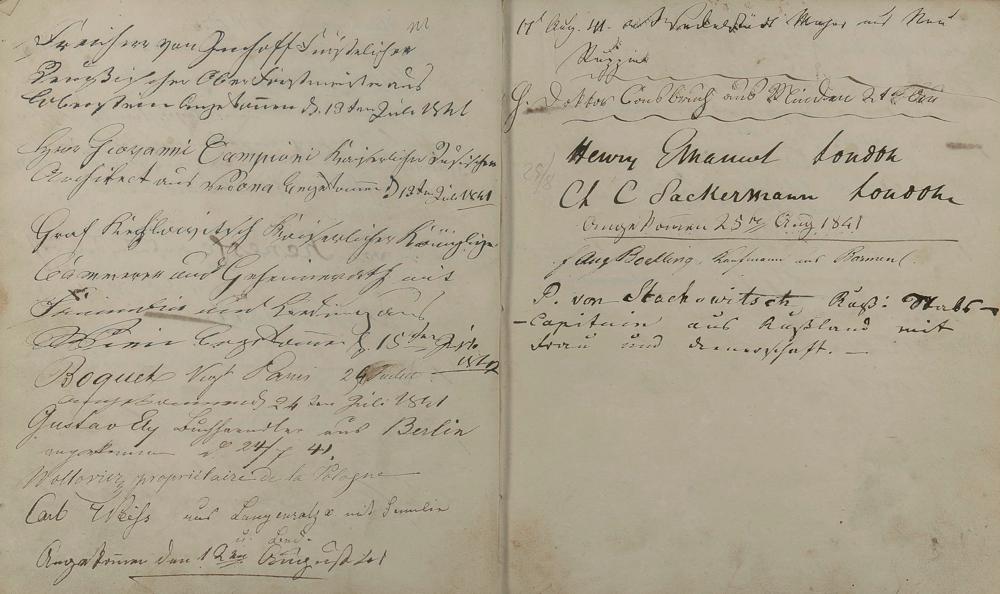 Freiherr von Imhoff Fürstlicher
Reußischer Oberforstmeister aus
Ebersdorf angekommen d. 13ten Juli 1841
Herr Giovanni Campioni Kaiserlicher Russischer
Architect aus Verona angekommen d 13ten Juli 1841
Graf Kaiserlicher Königlicher
Cämmerer und Geheimerath mit
Familie und Bedienung aus
Wien angekommen d. 15ten Juli
1841
Boquet Paris 24 Juillet
angekommen d 24ten Juli 1841
Gustav Buchhändler aus Berlin
angekommen d. 24/7 41.
propriétaire de la Pologne
Carl Weiss aus Langensalza mit Familie
u. Bed.
Angekommen den 12ten August 41
17t Aug. 41. Major aus Neu
Ruppin
H. Doktor Consbruch aus Minden
25/8
Henry Emanuel London
Ch C Sackermann London
Angekommen 25ten Aug 1841
Aug Boelling, Kaufmann aus Barmen.
P. von Stachowitsch Ruß: Stabs-
-Capitain aus Rußland mit
Frau und Dienerschaft. —